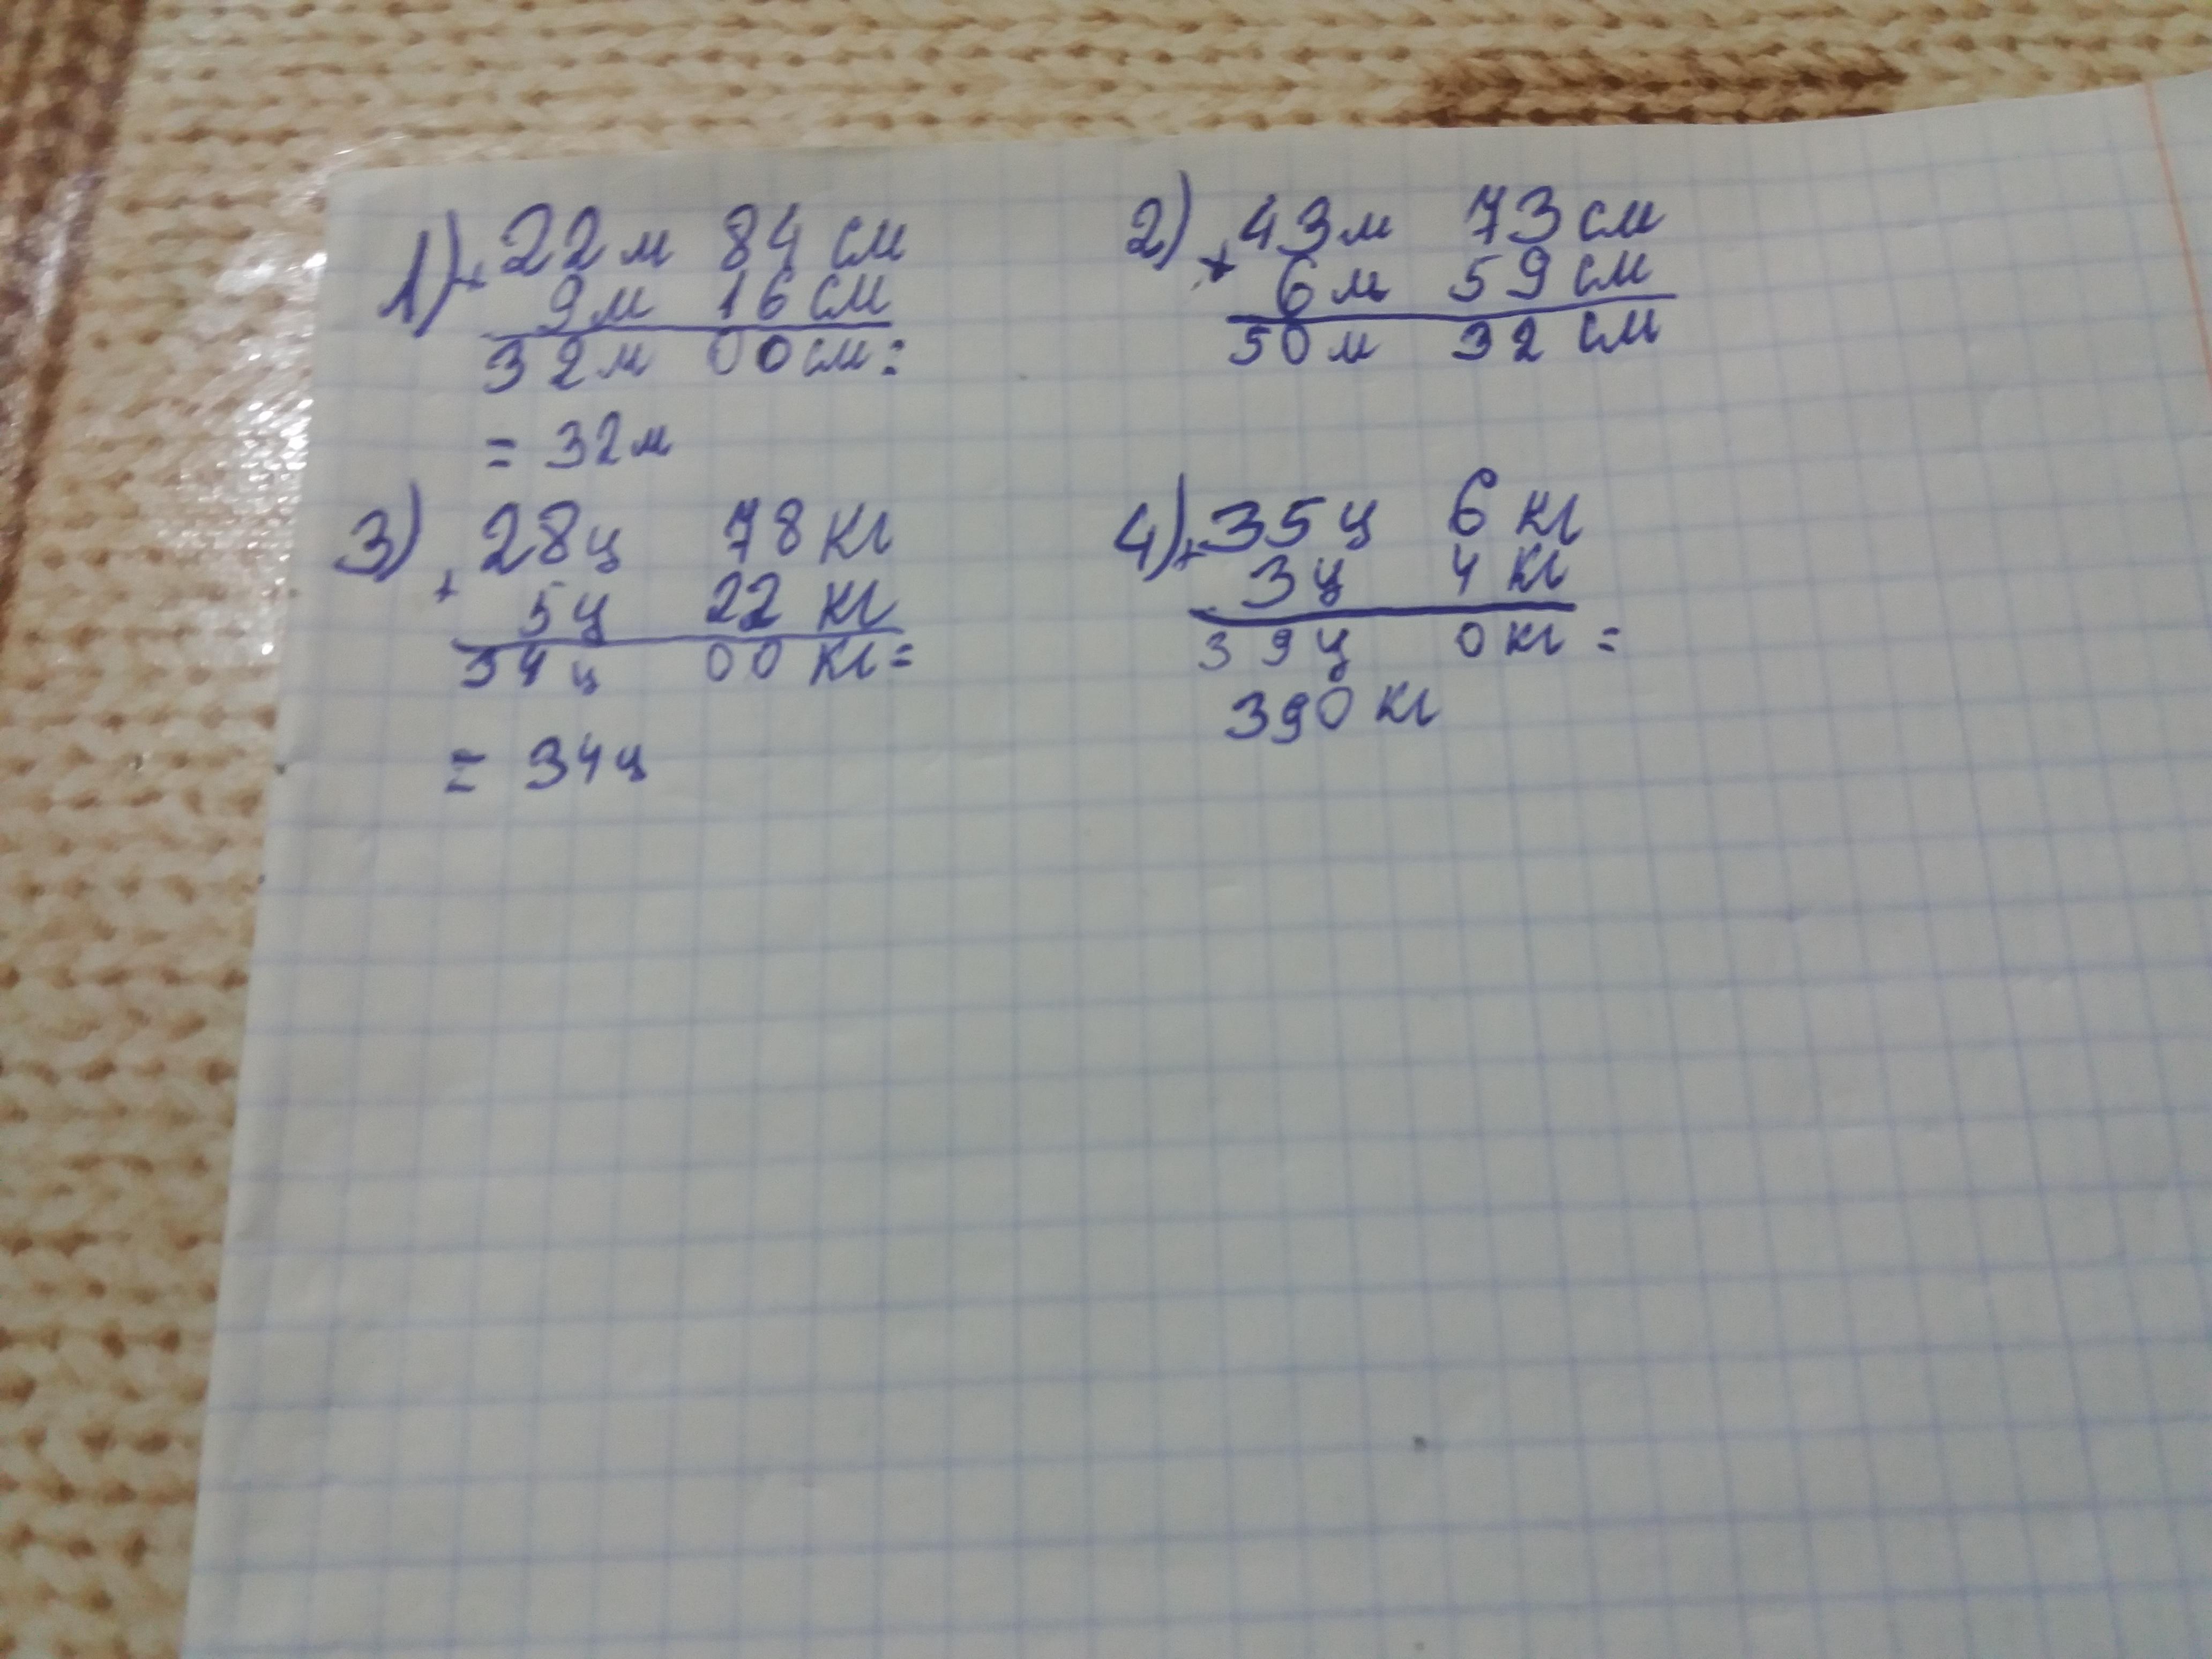 1) + 22 м 84 см
9 м 16 см
32 м 00 см =
= 32 м
2) + 43 м 73 см
6 м 59 см
50 м 32 см
3) + 28 ц 78 кг
5 ц 22 кг
34 ц 00 кг =
= 34 ц
4) + 35 ц 6 кг
3 ц 4 кг
39 ц 0 кг =
390 кг